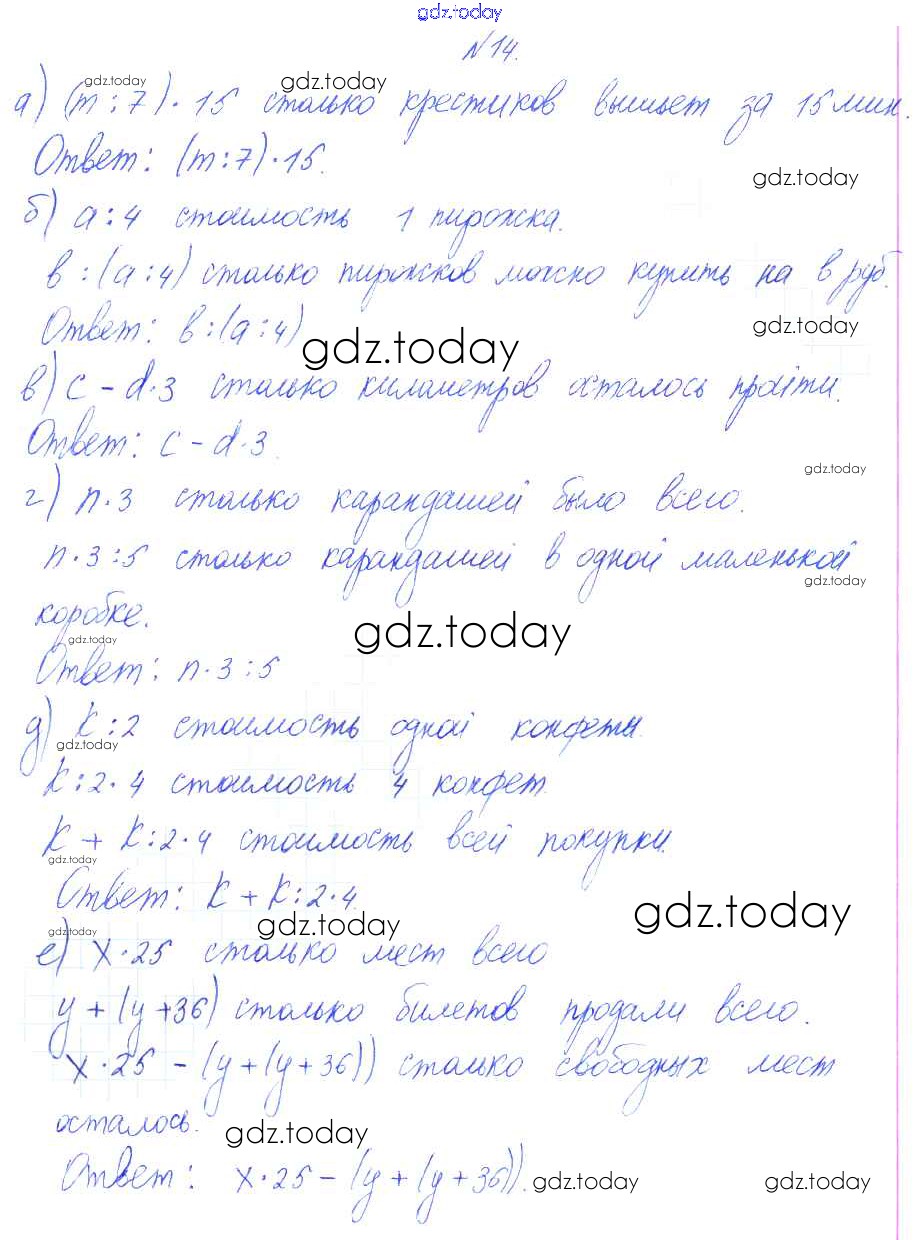 gdz.today
№14.
gdz.today gdz.today
а) (m:7)·15 столько крестиков вышьет за 15 мин.
Ответ: (m:7)·15.
gdz.today
б) a:4 стоимость 1 пирожка.
в:(a:4) столько пирожков можно купить на в руб.
Ответ: в:(a:4)
gdz.today gdz.today
в) c - d·3 столько километров осталось пройти.
Ответ: c - d·3
gdz.today
г) n·3 столько карандашей было всего.
n·3:5 столько карандашей в одной маленькой
gdz.today
коробке.
gdz.today gdz.today
Ответ: n·3:5
д) K:2 стоимость одной конфеты.
gdz.today
K:2·4 стоимость 4 конфет.
K + K:2·4 стоимость всей покупки.
gdz.today
Ответ: K + K:2·4.
gdz.today gdz.today gdz.today
е) x·25 столько мест всего
y + (y+36) столько билетов продали всего.
x·25 - (y + (y+36)) столько свободных мест
осталось.
gdz.today
Ответ: x·25 - (y + (y+36)).
gdz.today gdz.today